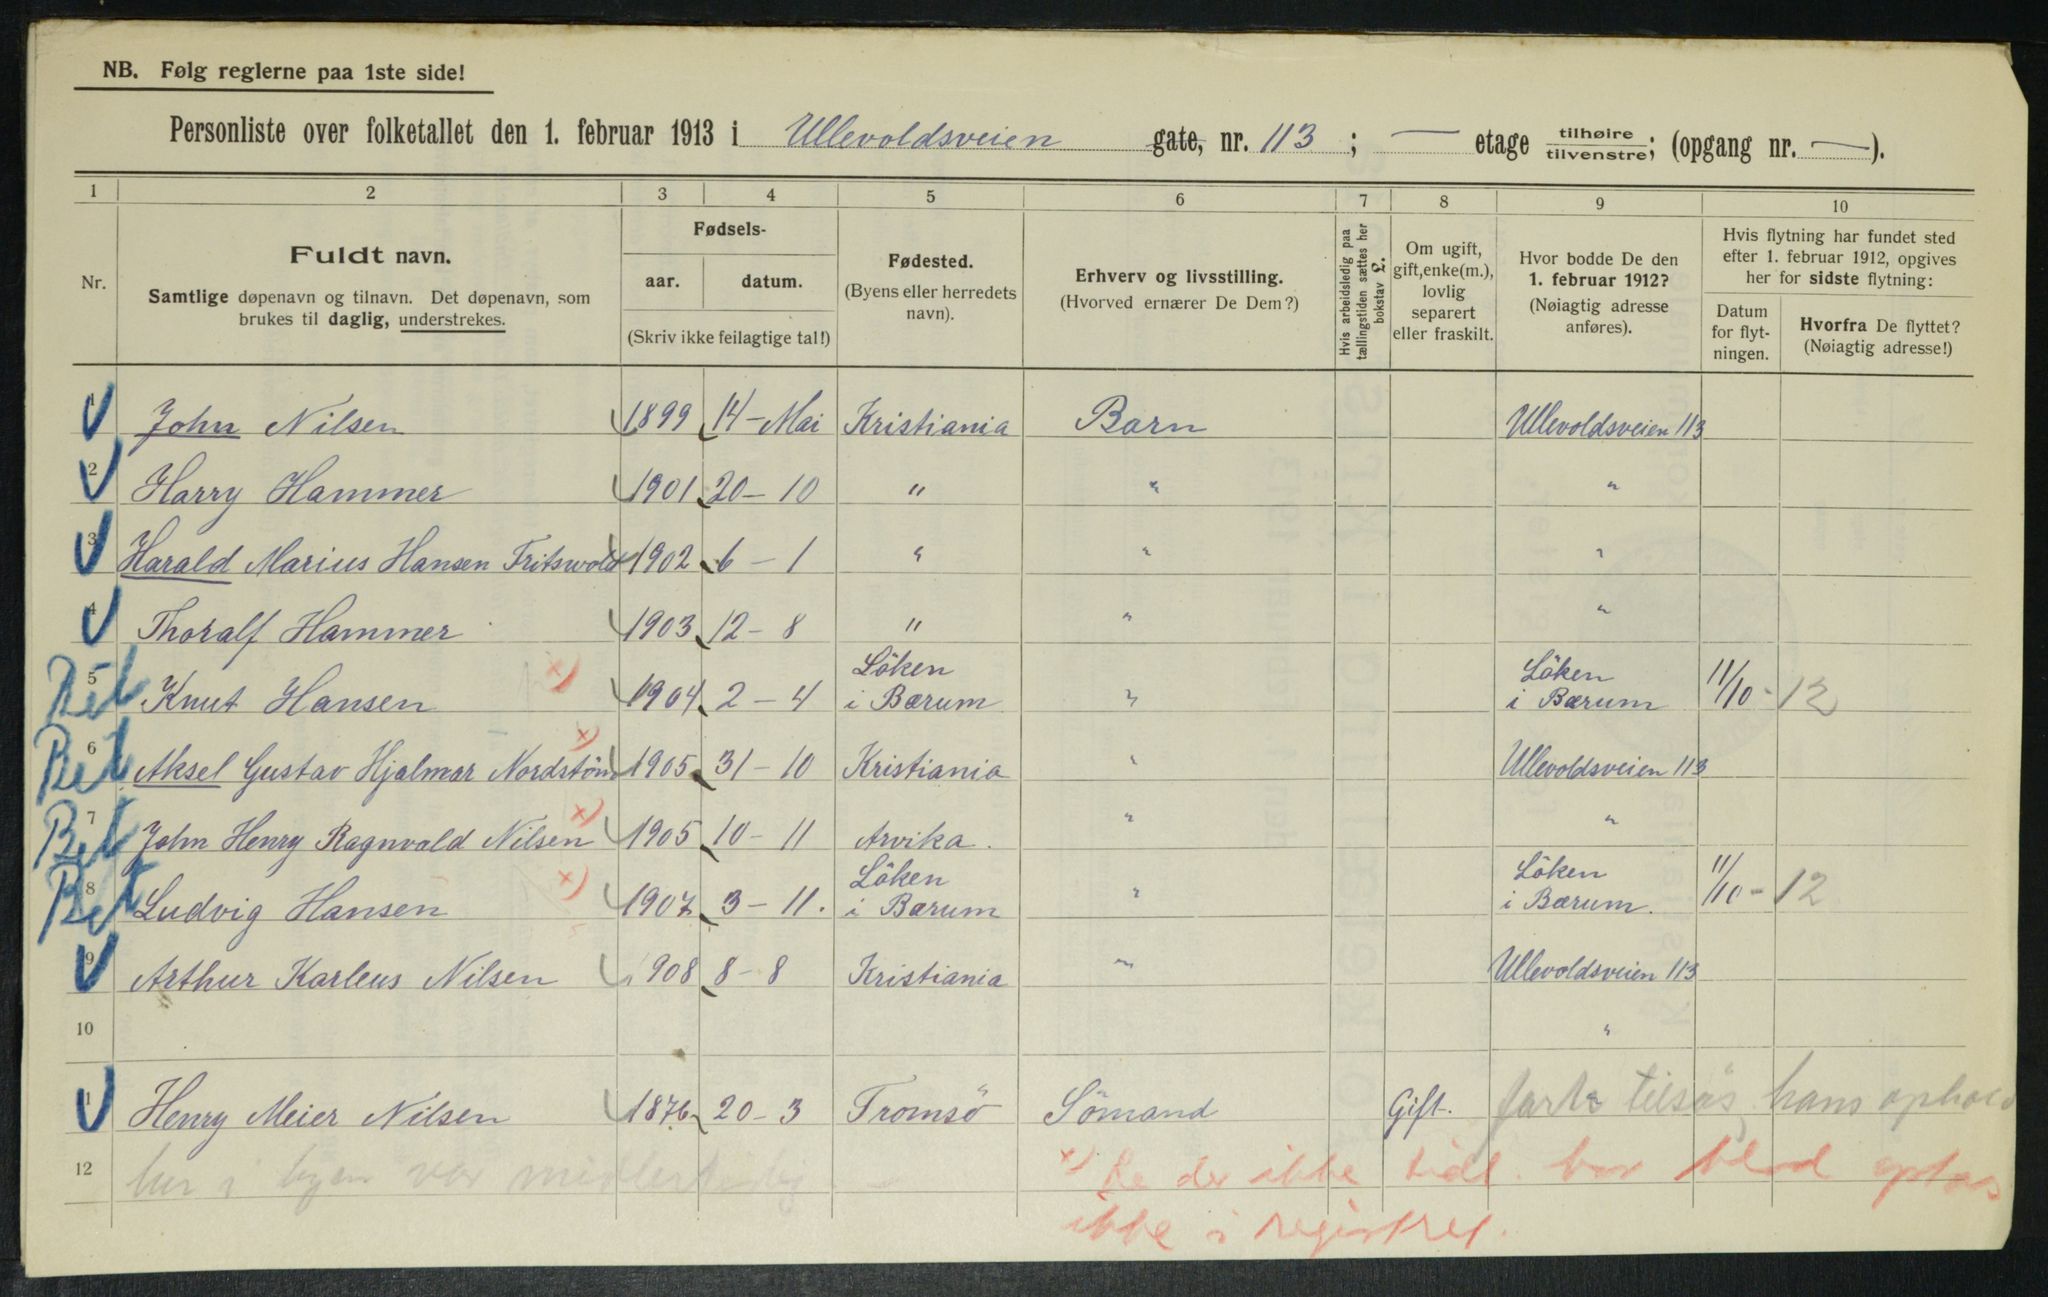 NB. Følg reglerne paa 1ste side!
Personliste over folketallet den 1. februar 1913 i Ullevoldsveien gate, nr. 113 ; — etage tilhøire/tilvenstre; (opgang nr. — ).
1 2 3 4 5 6 7 8 9 10
Nr.
Fuldt navn.
Samtlige døpenavn og tilnavn. Det døpenavn, som
brukes til daglig, understrekes.
Fødsels-
aar. datum.
(Skriv ikke feilagtige tal!)
Fødested.
(Byens eller herredets
navn).
Erhverv og livsstilling.
(Hvorved ernærer De Dem?)
Hvis arbeidsledig paa
tællingstiden sættes her
bokstav L.
Om ugift,
gift, enke(m.),
lovlig
separert
eller fraskilt.
Hvor bodde De den
1. februar 1912?
(Nøiagtig adresse
anføres).
Hvis flytning har fundet sted
efter 1. februar 1912, opgives
her for sidste flytning:
Datum
for flyt-
ningen.
Hvorfra De flyttet?
(Nøiagtig adresse!)
1 John Nilsen 1899 14 - Mai Kristiania Barn Ullevoldsveien 113
2 Harry Hammer 1901 20 - 10 " " "
3 Harald Marius Hansen Fritswold 1902 6 - 1 " " "
4 Thoralf Hammer 1903 12 - 8 " " "
Bet 5 Knut Hansen x) 1904 2 - 4 Löken i Bærum " Löken i Bærum 11/10 - 12
Bet 6 Aksel Gustav Hjalmar Nordstöm x) 1905 31 - 10 Kristiania " Ullevoldsveien 113
Bet 7 John Henry Ragnvald Nilsen x) 1905 10 - 11 Arvika. " "
Bet 8 Ludvig Hansen x) 1907 3 - 11. Löken i Bærum " Löken i Bærum. 11/10 - 12
9 Arthur Karleus Nilsen 1908 8 - 8 Kristiania " Ullevoldsveien 113
10 "
11 Henry Meier Nilsen 1876 20 - 3 Tromsö Sömand Gift. tilsös, hans ophold
12 her i byen var midlertidig
x) De der ikke har
ikke i registret.